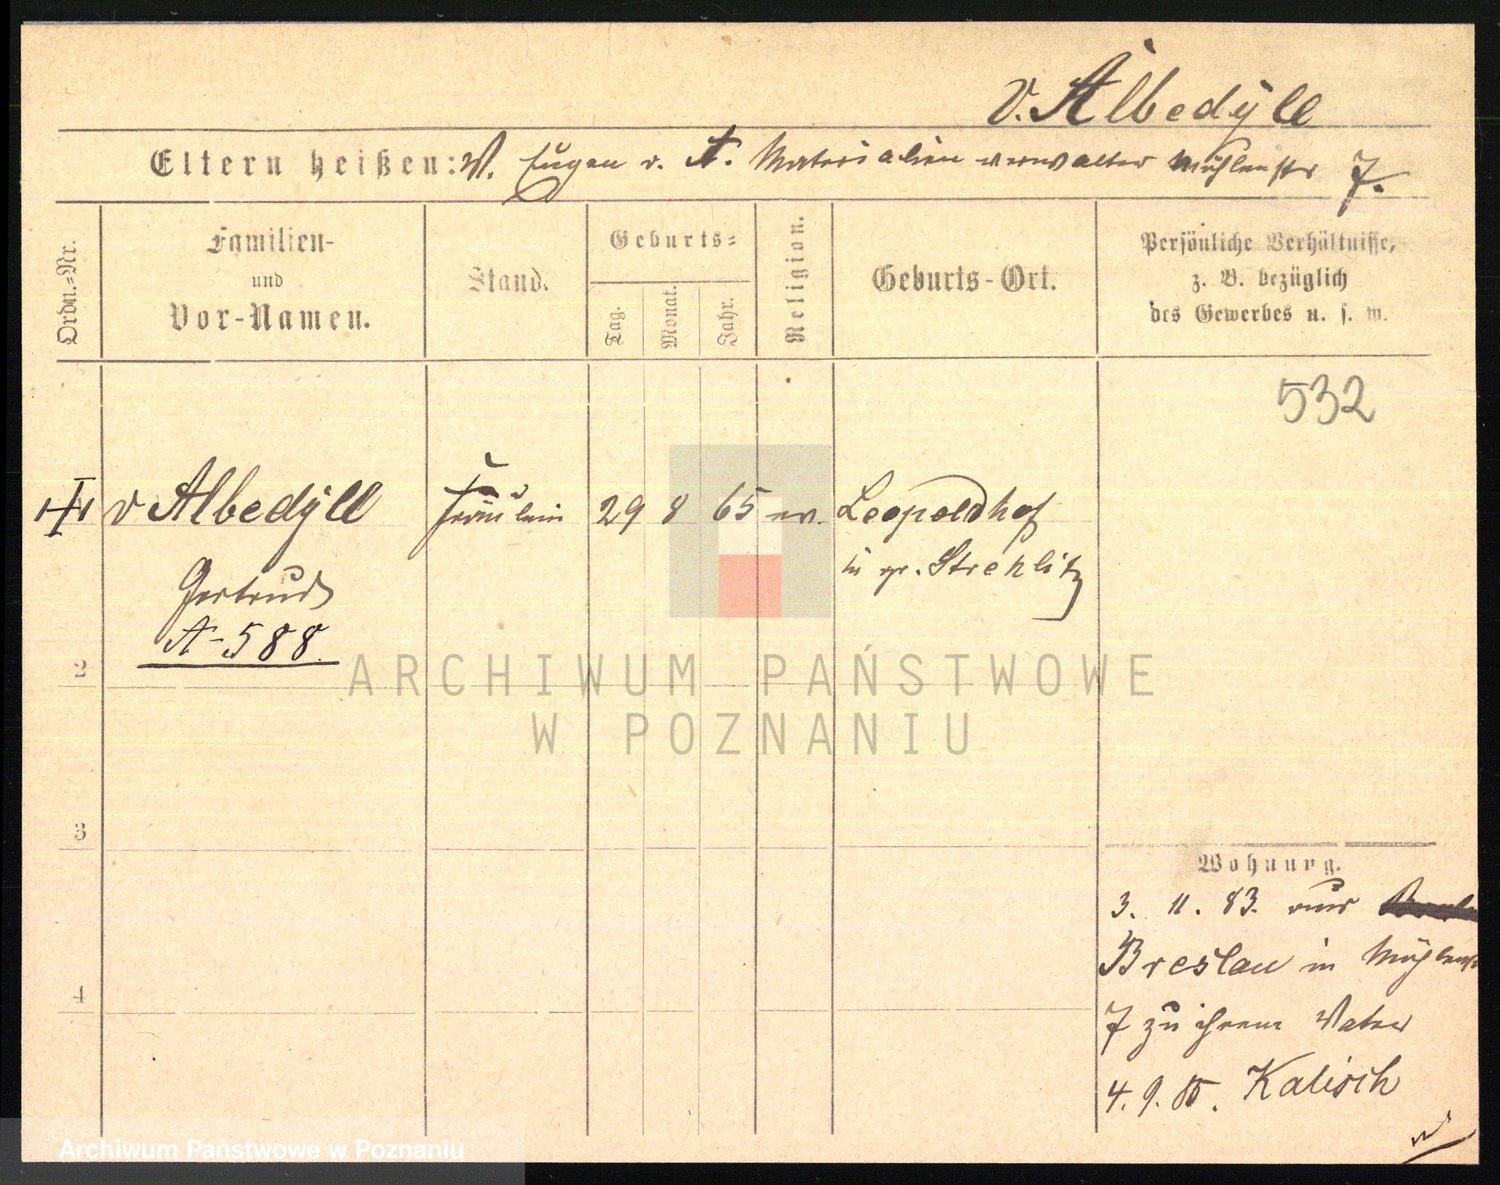 v. Albedÿll
Eltern heißen: V. Eugen v. A. Materialienverwalter Mühlenstr 7.
Ordn.=Nr.
Familien-
und
Vor-Namen.
Stand.
Geburts=
Tag.
Monat.
Jahr.
Religion.
Geburts-Ort.
Persönliche Verhältnisse,
z. B. bezüglich
des Gewerbes u. s. w.
532
v Albedÿll Fräulein 29 8 65 ev. Leopoldshof
Gertrud
in gr. Strehlitz
A-588.
2
ARCHIWUM PAŃSTWOWE
W POZNANIU
3
Wohnung.
3. 11. 83. aus
Breslau in Mühlenst
4
7 zu ihrem Vater
4. 9. 85. Kalisch
Archiwum Państwowe w Poznaniu